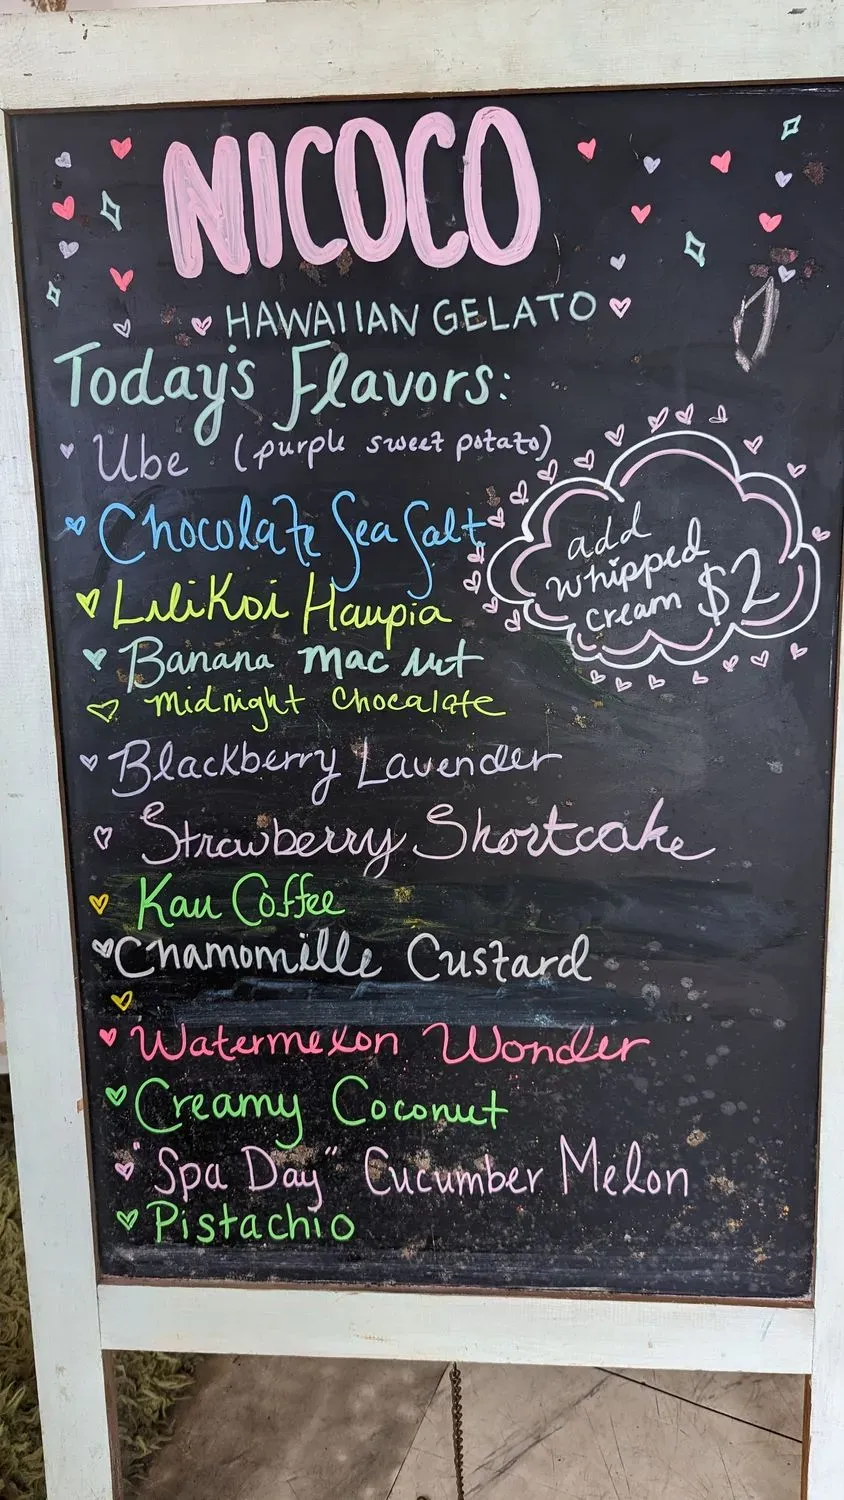 NICOCO
HAWAIIAN GELATO
Today's Flavors:
Ube (purple sweet potato)
Chocolate Sea Salt
LiliKoi Haupia
Banana mac nut
midnight chocalate
Blackberry Lavender
Strawberry Shortcake
Kau Coffee
Chamomille Custard
Watermelon Wonder
Creamy Coconut
"Spa Day" Cucumber Melon
Pistachio
add
whipped
cream $2